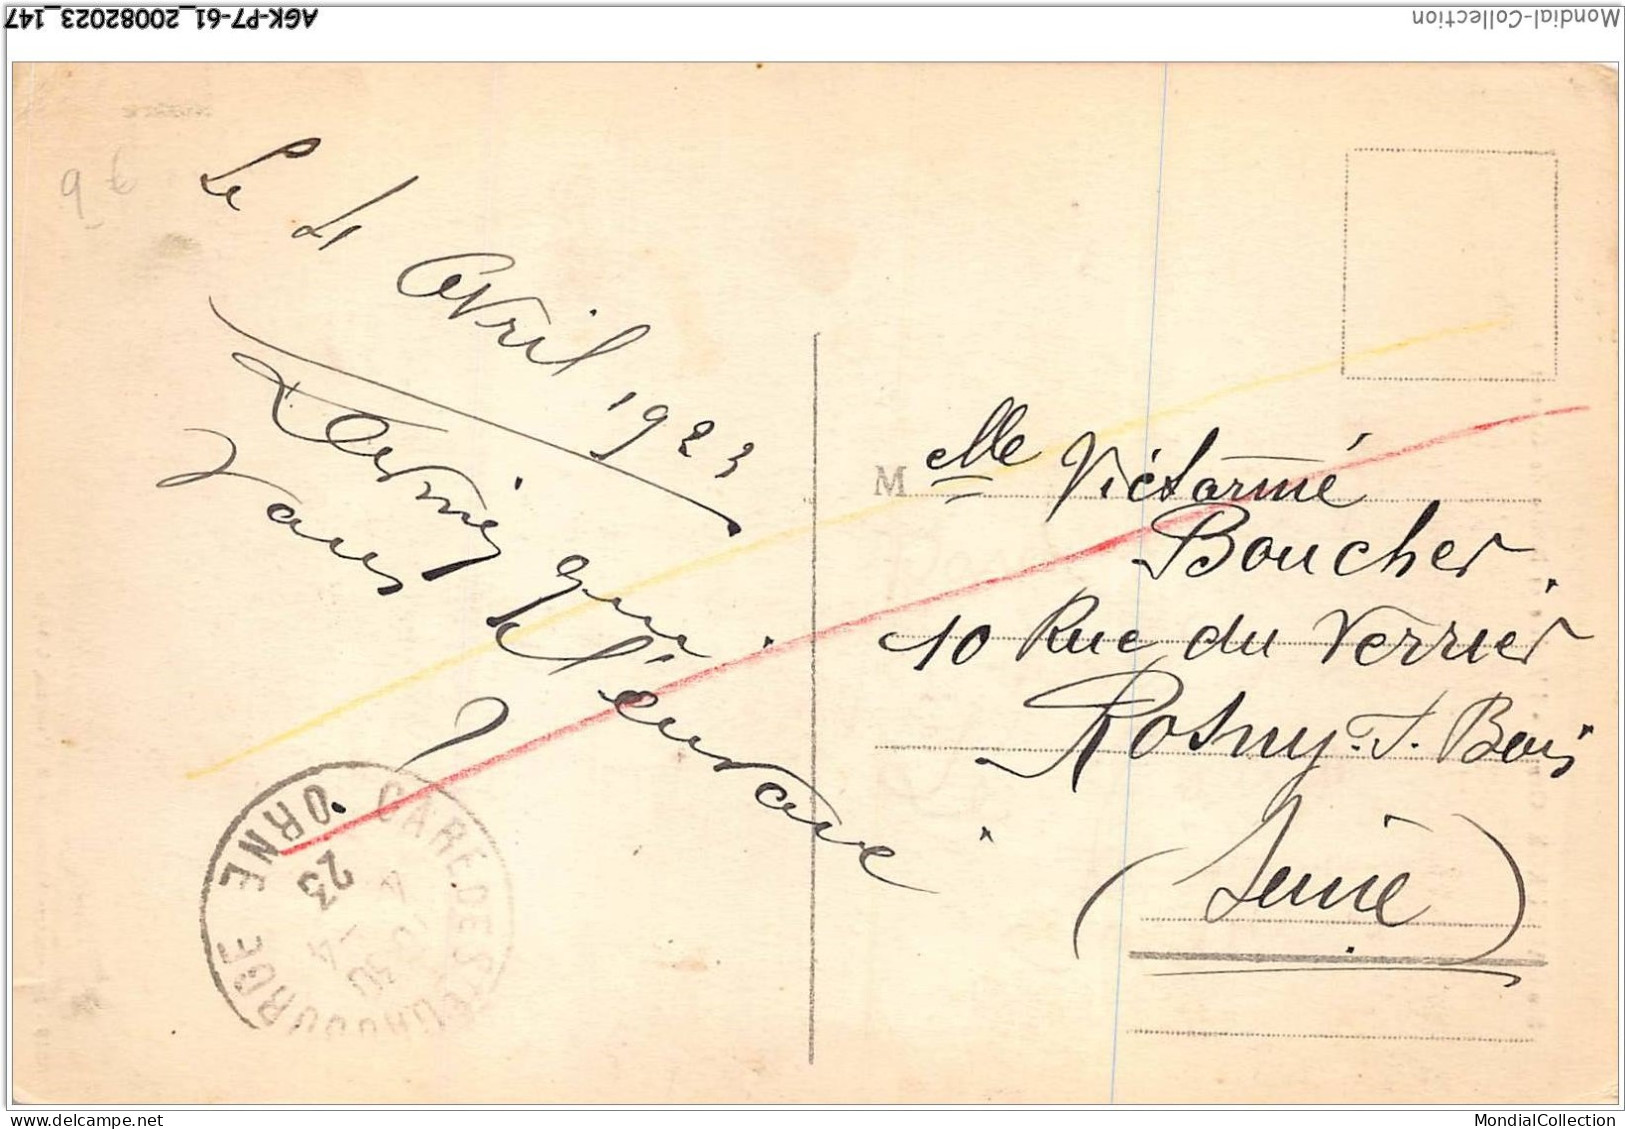 AGK-P7-61_20082023_147
Mondial-Collection
9 €
Le 4 Avril 1923
qui
M elle Victorine
Boucher.
10 Rue du Verrier
Rosny. s. Bois
(Seine)
GARE DE STE GAUBURGE
ORNE
23
delcampe.net
MondialCollection